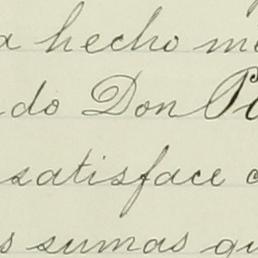 a hecho me
do Don P
satisface c
s sumas qu